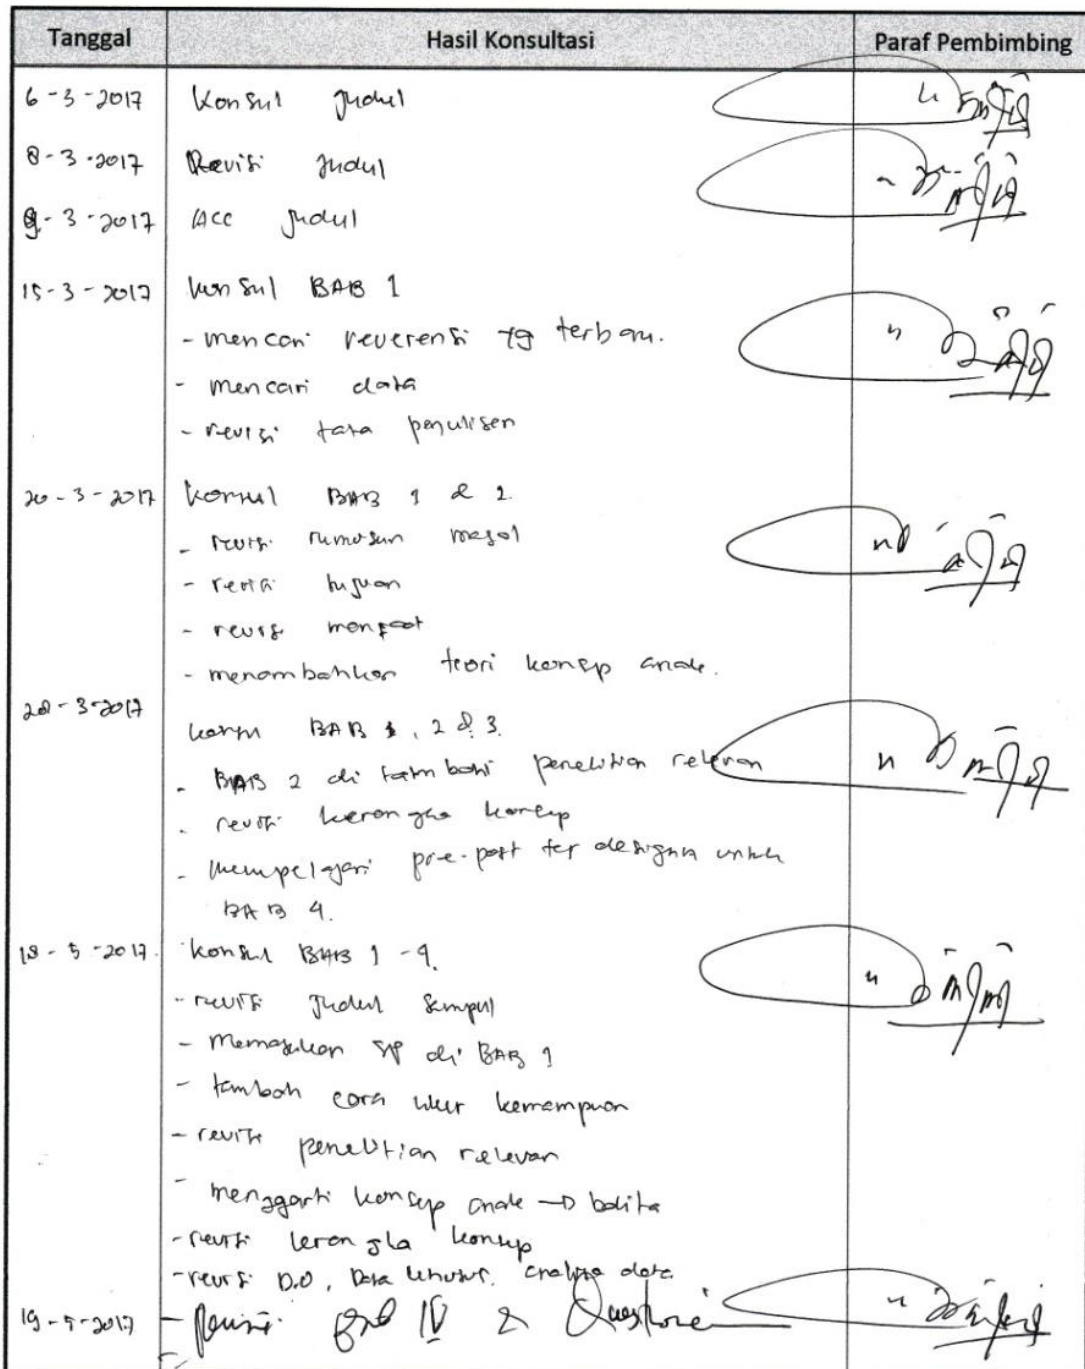 Tanggal Hasil Konsultasi Paraf Pembimbing
6-3-2017 Konsul Judul
8-3-2017 Revisi Judul
9-3-2017 ACC Judul
15-3-2017 Konsul BAB 1
- mencari reverensi yg terbaru.
- mencari data
- revisi tata penulisan
20-3-2017 Konsul BAB 1 & 2.
- revisi rumusan masal
- revisi tujuan
- revisi manfaat
- menambahkan teori konsep anak.
28-3-2017
konsul BAB 1, 2 & 3.
- BAB 2 di tambahi penelitian relevan
- revisi kerangka konsep
- mempelajari pre-post tes designn untuk
BAB 4.
18-5-2017. konsul BAB 1-4.
- revisi Judul Sampul
- Memasukan di BAB 1
- tambah cara ukur kemampuan
- revisi penelitian relevan
- mengganti konsep anak → balita
- revisi kerangka konsep
- revisi D.O, Data khusus. analisa data
19-5-2017 - Revisi Bab IV &